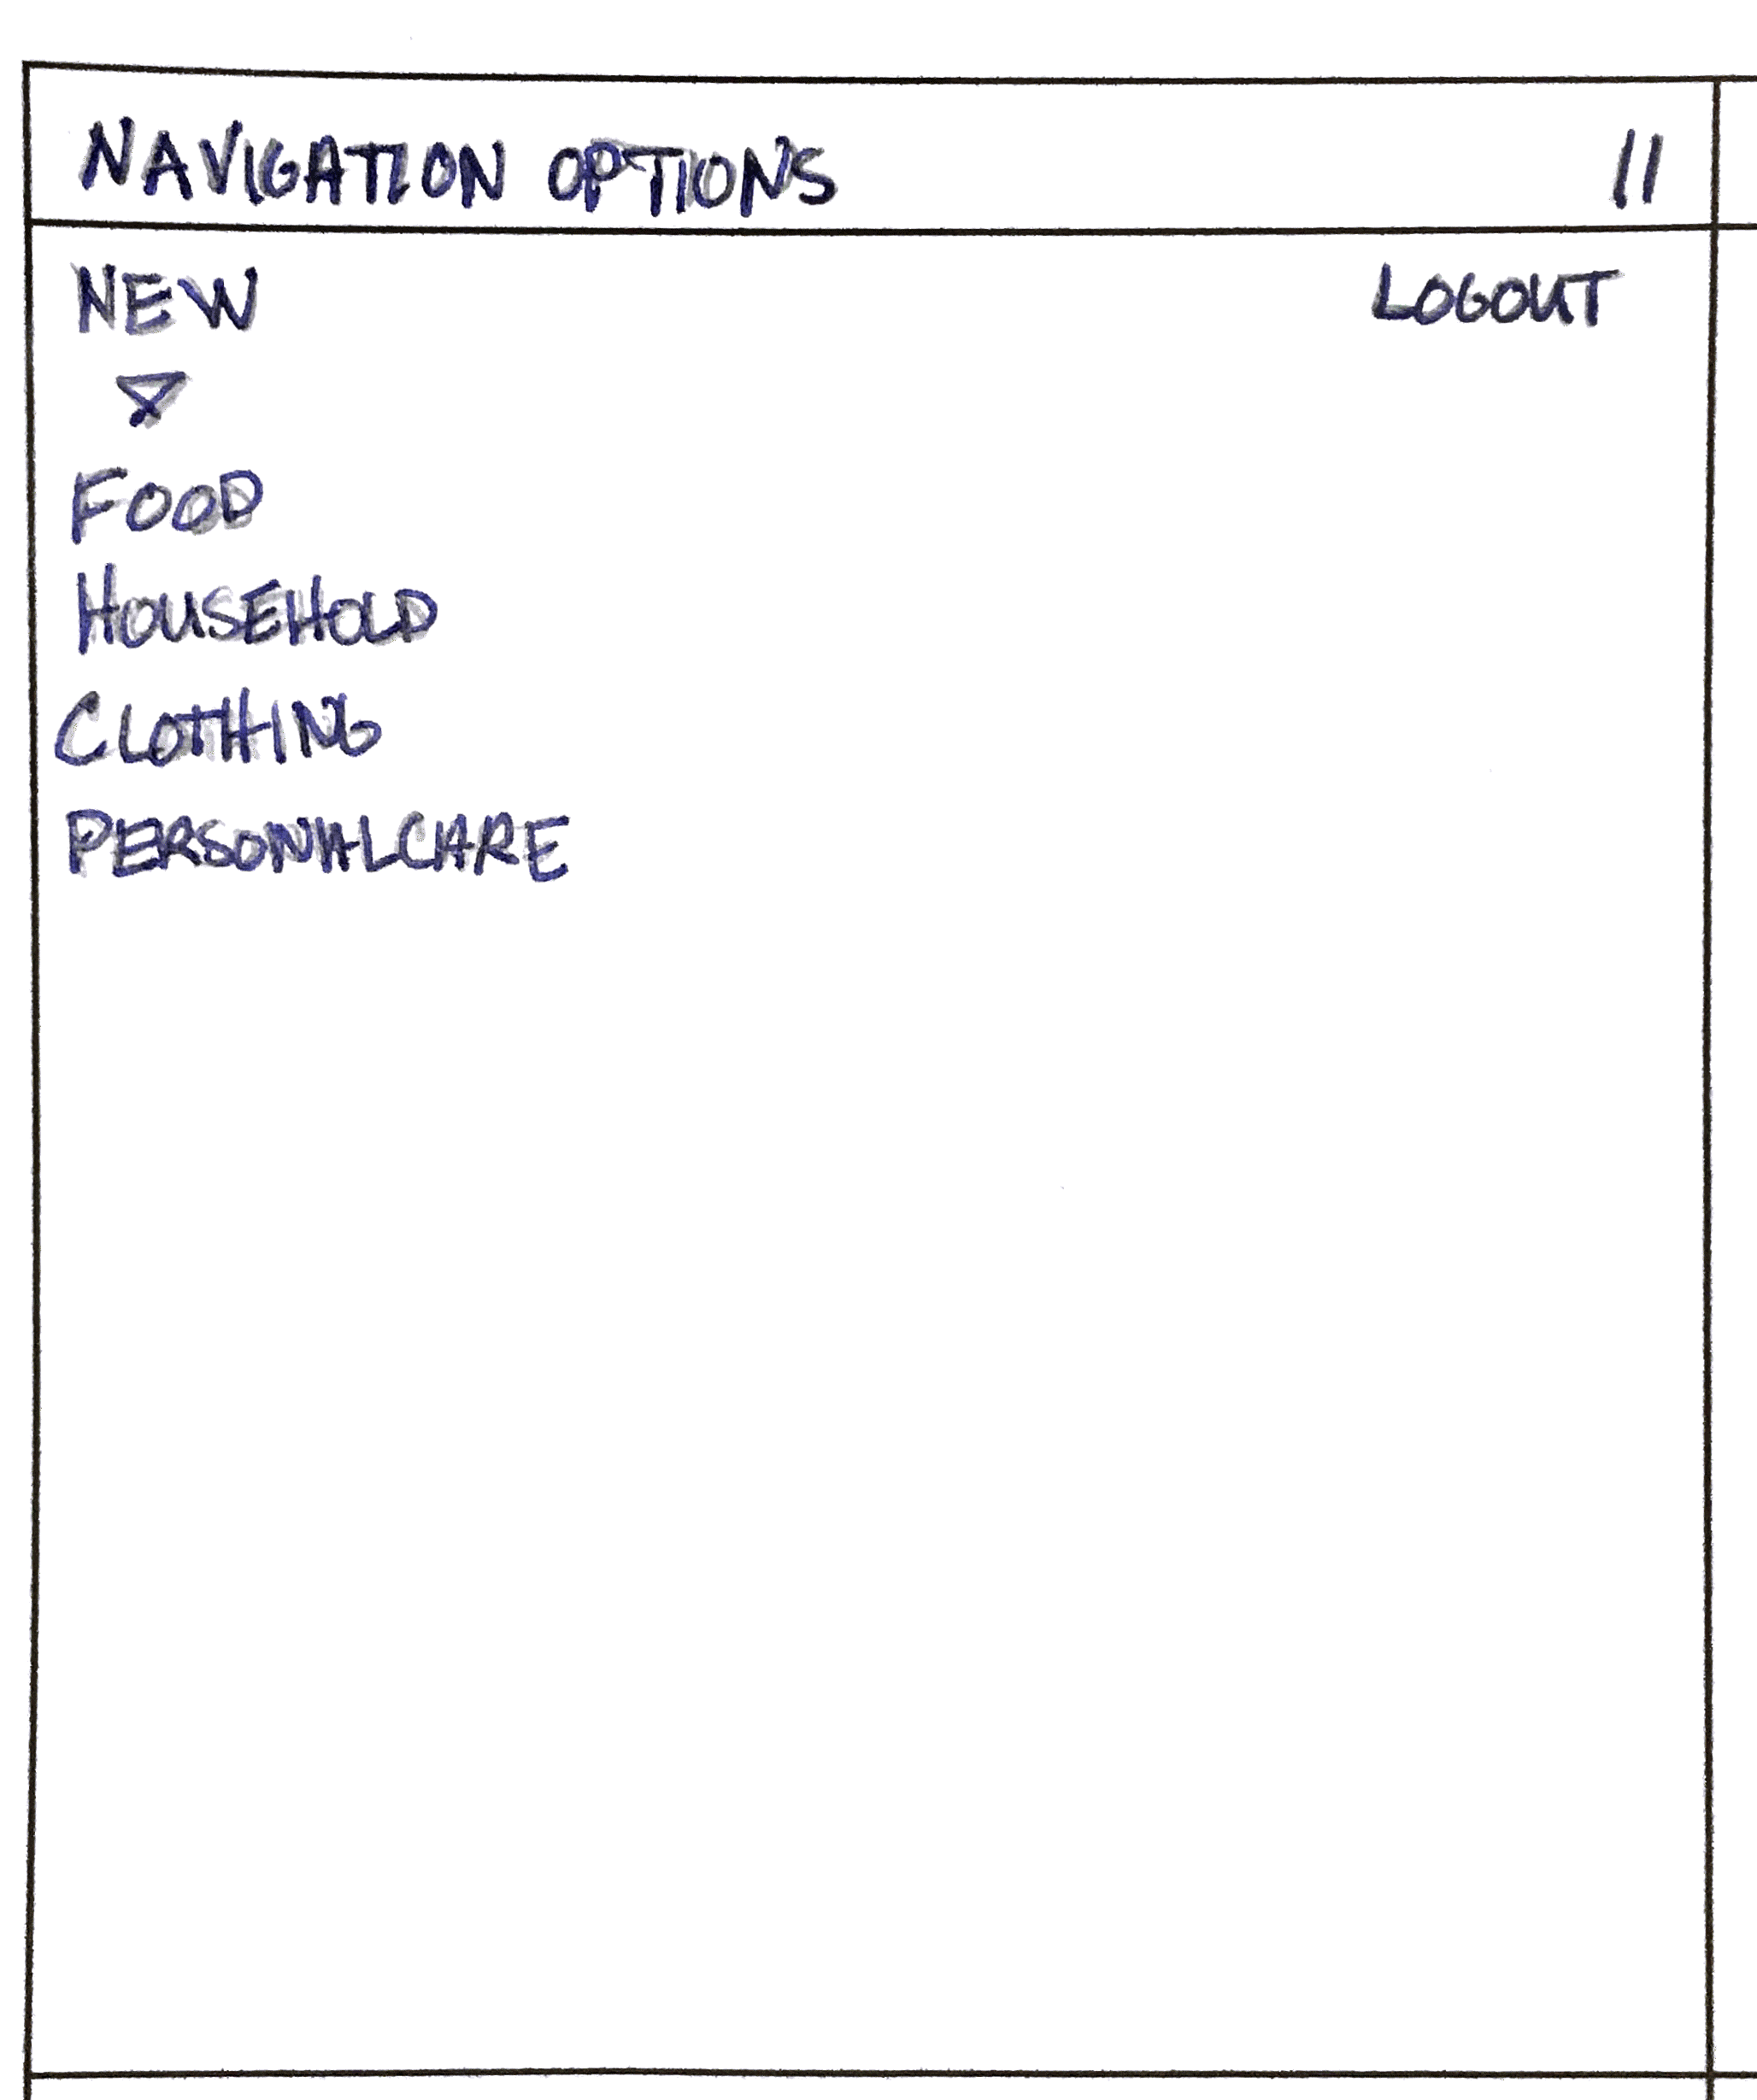 NAVIGATION OPTIONS 11
NEW LOGOUT
FOOD
HOUSEHOLD
CLOTHING
PERSONALCARE